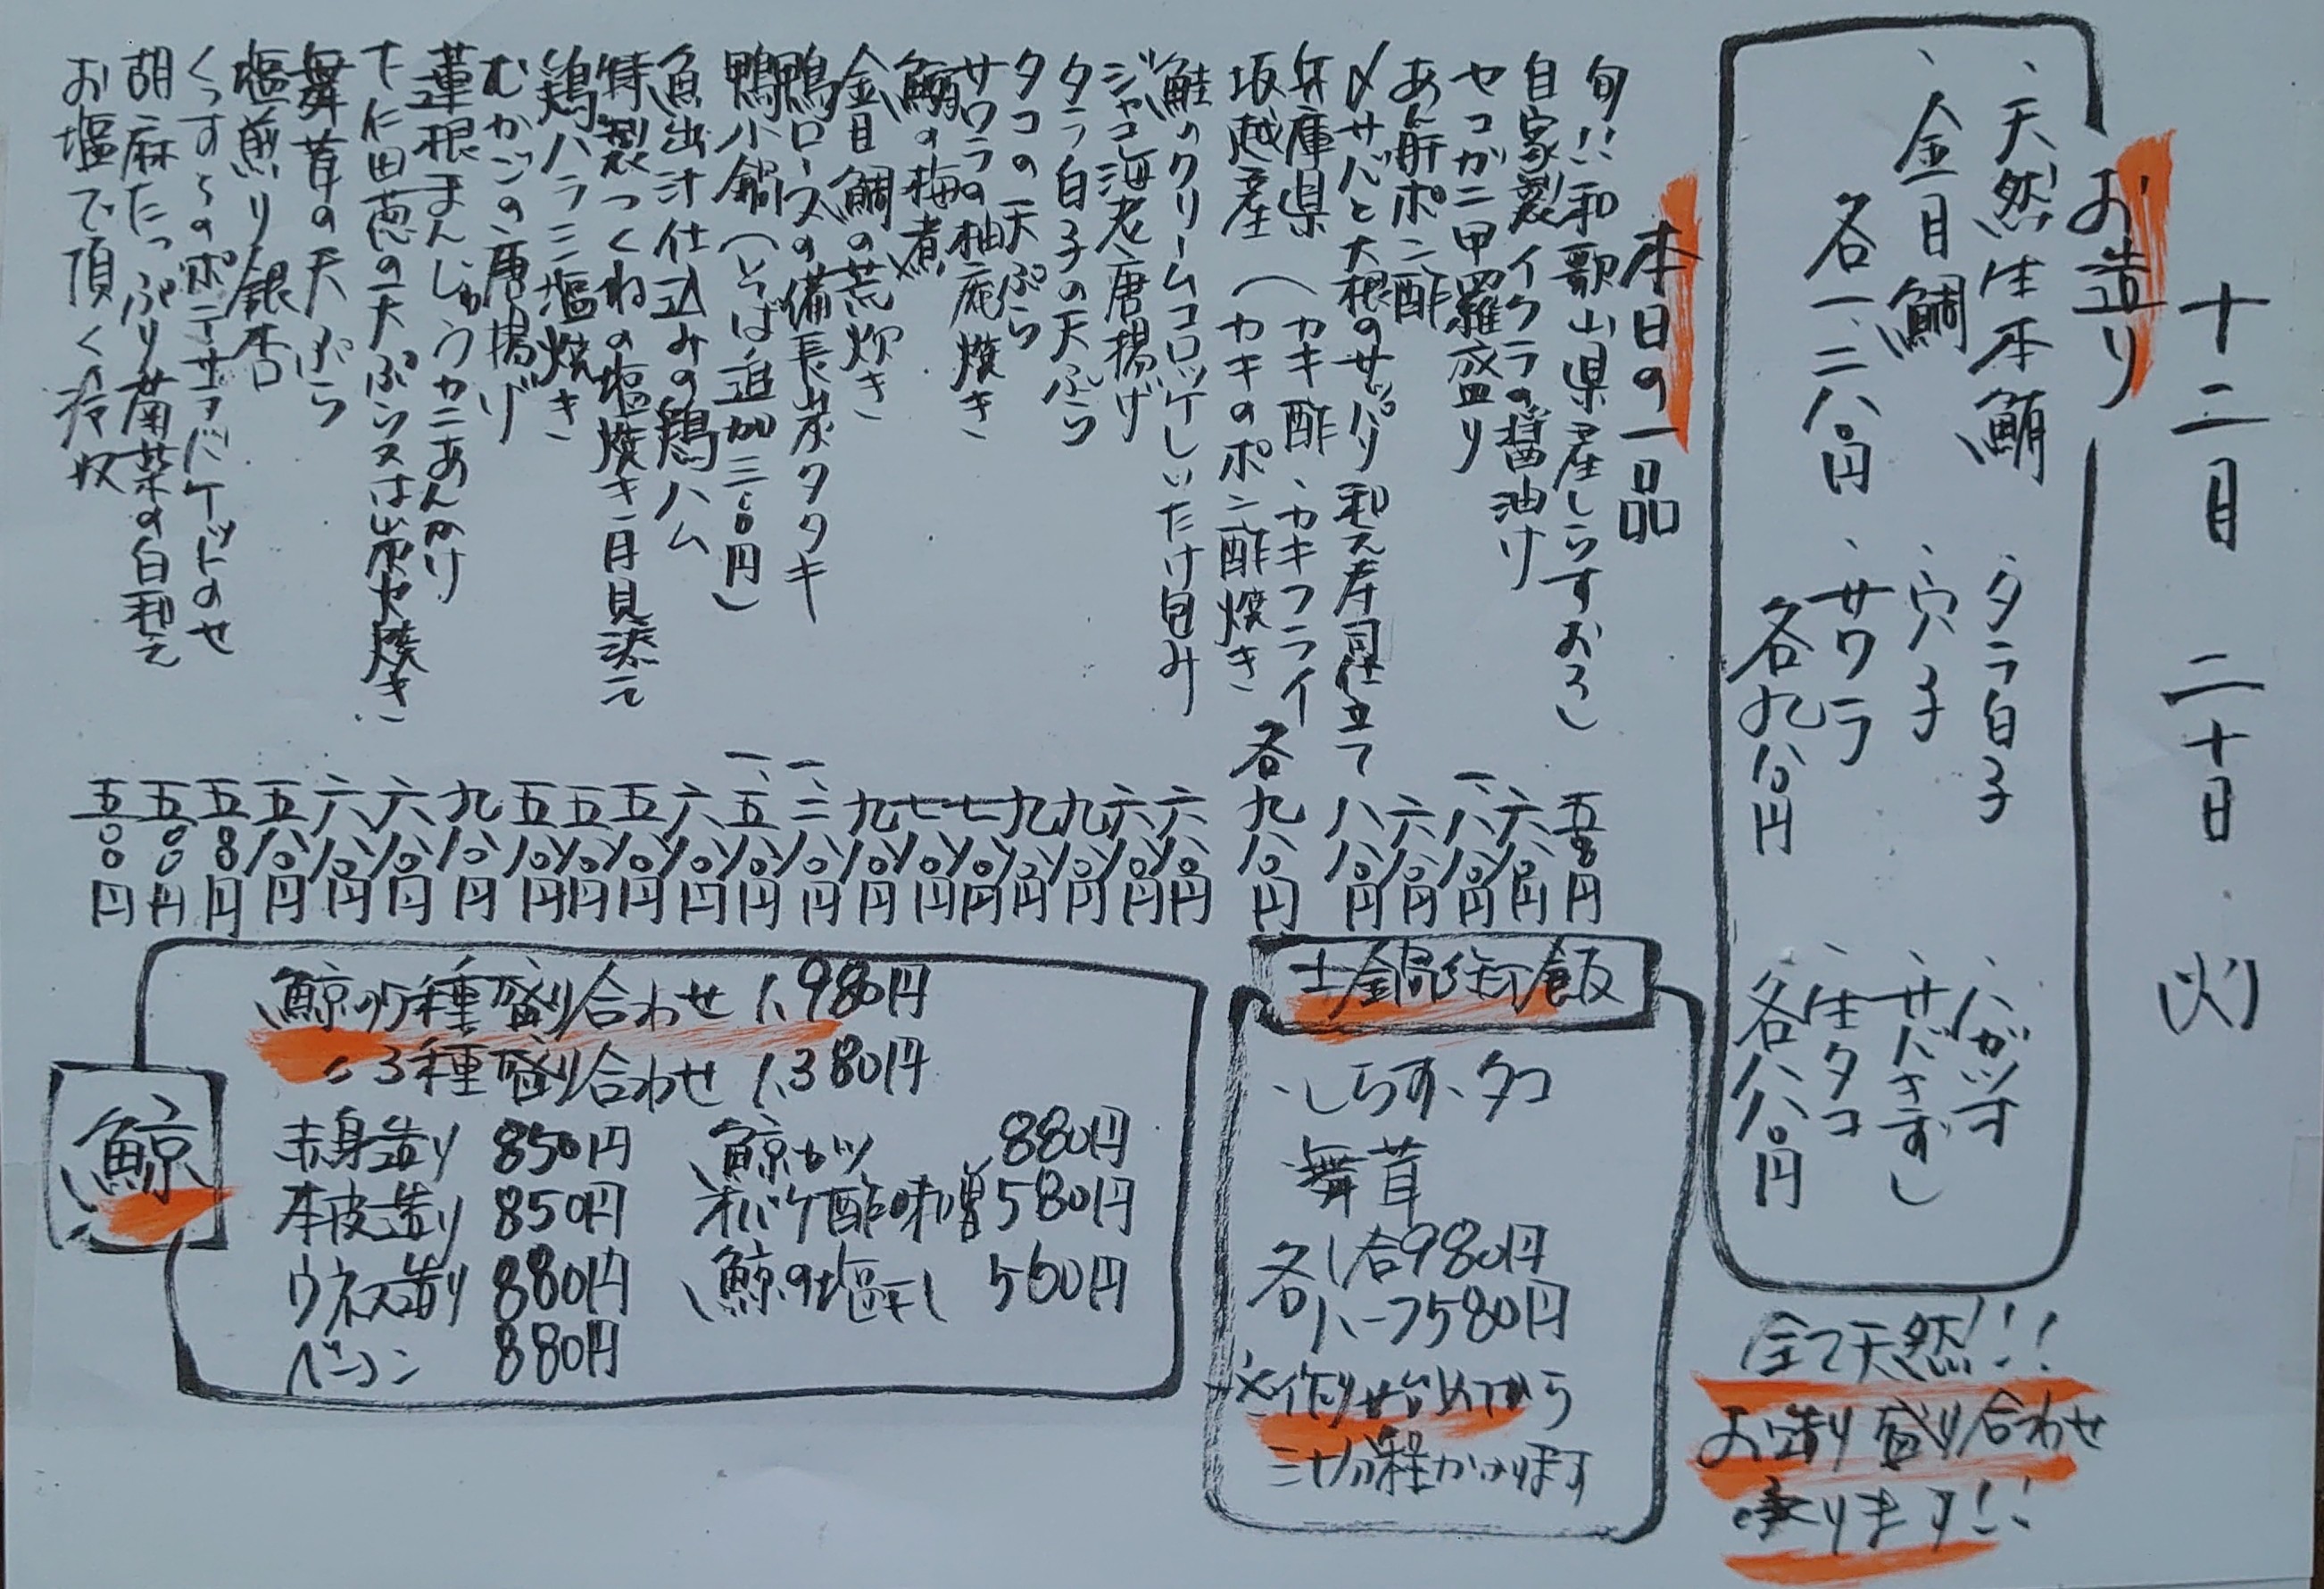 十二月 二十日 火
お造り
、天然生本鮪
、金目鯛
各一、二八〇円
、タラ白子
、穴子
、サワラ
各九八〇円
、ハガツオ
、サバきずし
、生タコ
各八八〇円
全て天然!!!
お造り盛り合わせ
承ります!!
本日の一品
旬!!和歌山県産しらすおろし 五八〇円
自家製イクラの醤油け 六八〇円
セコガニ甲羅盛り 一、八八〇円
あん肝ポン酢 六八〇円
〆サバと大根のサッパリ和え寿司仕立て 八八〇円
兵庫県 (カキ酢、カキフライ
坂越産 (カキのポン酢焼き 各九八〇円
鮭のクリームコロッケしいたけ包み 六八〇円
ジャコ海老唐揚げ 六八〇円
タラ白子の天ぷら 九八〇円
タコの天ぷら 九八〇円
サワラの柚庵焼き 七八〇円
鰯の梅煮 七八〇円
金目鯛の荒炊き 九八〇円
鴨ロースの備長炭タタキ 一、二八〇円
鴨小鍋(そば追加三〇〇円) 一、五八〇円
魚出汁仕込みの鶏ハム 六八〇円
特製つくねの塩焼き月見添え 五八〇円
鶏ハラミ塩焼き 五八〇円
むかごの唐揚げ 五八〇円
蓮根まんじゅうカニあんかけ 九八〇円
下仁田葱の天ぷら又は炭火焼き 六八〇円
舞茸の天ぷら 六八〇円
塩煎り銀杏 五八〇円
くつすらのポテサラバケットのせ 五八〇円
胡麻たっぷり菊菜の白和え 五八〇円
お塩で頂く冷奴 五〇〇円
土鍋御飯
、しらす、タコ
、舞茸
各1合980円
各ハーフ580円
※作り始めてから
三十分程かかります
鯨
鯨の5種盛り合わせ 1,980円
〃3種盛り合わせ 1,380円
赤身造り 850円
本皮造り 850円
ウネス造り 880円
ベーコン 880円
鯨カツ 880円
オバケ酢味噌 580円
鯨の塩干し 560円